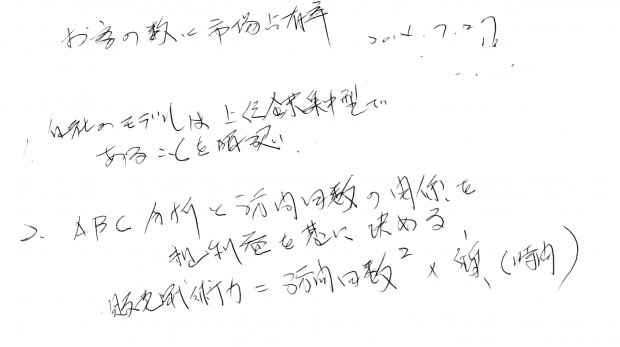 お客の数と市場占有率
1. 当社のモデルは上位企業集中型で
あることを
2. ABC分析と訪問回数の関係を
粗利益を基に決める
販売戦術力=訪問回数² × 質(時間)